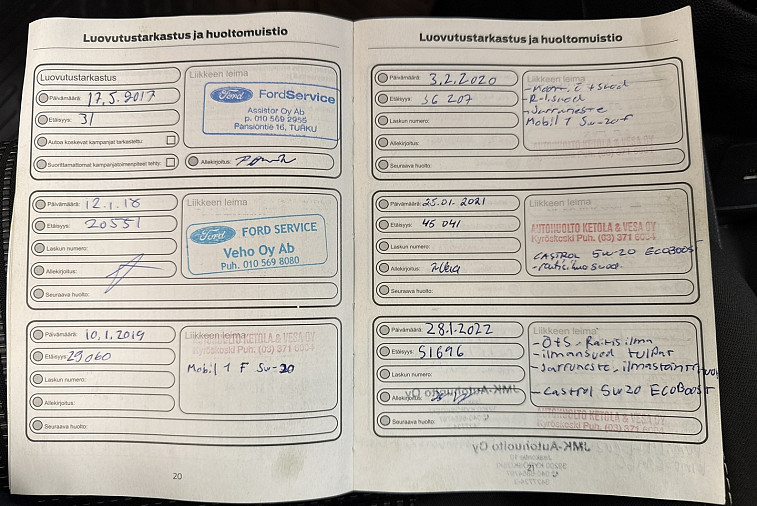 Luovutustarkastus ja huoltomuistio
Luovutustarkastus
Päivämäärä: 17.5.2017
Etäisyys: 31
Autoa koskevat kampanjat tarkastettu:
Suorittamattomat kampanjatoimenpiteet tehty:
Liikkeen leima
Ford FordService
Assistor Oy Ab
p. 010 569 2955
Pansiontie 16, TURKU
Allekirjoitus:
Päivämäärä: 12.1.18
Etäisyys: 20551
Laskun numero:
Allekirjoitus:
Seuraava huolto:
Liikkeen leima
Ford FORD SERVICE
Veho Oy Ab
Puh. 010 569 8080
Päivämäärä: 10.1.2019
Etäisyys: 29060
Laskun numero:
Allekirjoitus:
Seuraava huolto:
Liikkeen leima
AUTOHUOLTO KETOLA & VESA OY
Kyröskoski Puh. (03) 371 6004
Mobil 1 F 5w-20
20
Luovutustarkastus ja huoltomuistio
Päivämäärä: 3.2.2020
Etäisyys: 36 207
Laskun numero:
Allekirjoitus:
Seuraava huolto:
Liikkeen leima
- R-ilsuod
- Jarruneste
Mobil 1 5w-20 F
Päivämäärä: 25.01.2021
Etäisyys: 45 041
Laskun numero:
Allekirjoitus:
Seuraava huolto:
Liikkeen leima
AUTOHUOLTO KETOLA & VESA OY
Kyröskoski Puh. (03) 371 6004
CASTROL 5W-20 ECOBOOST
- raitisilmasuod.
Päivämäärä: 28.1.2022
Etäisyys: 51696
Laskun numero:
Allekirjoitus:
Seuraava huolto:
Liikkeen leima
- Ö+S, Raitisilma
- ilmansuod tulpat
- Jarruneste,
- Castrol 5w20 ECOBOOST
JMK-Autohuolto Oy
AUTOHUOLTO KETOLA & VESA OY
Kyröskoski Puh. (03) 371 6004
JMK-Autohuolto Oy
21